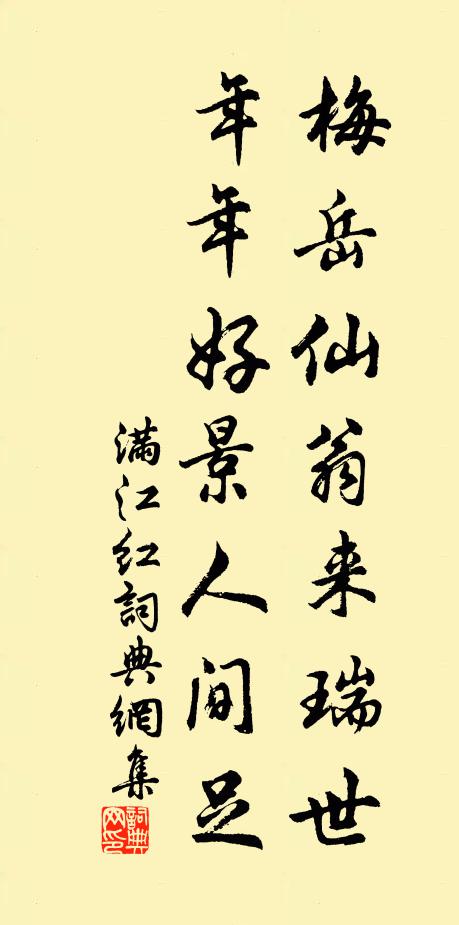 梅岳仙翁来瑞世
年年好景人间足
满江红詞典網集
詞典
网印